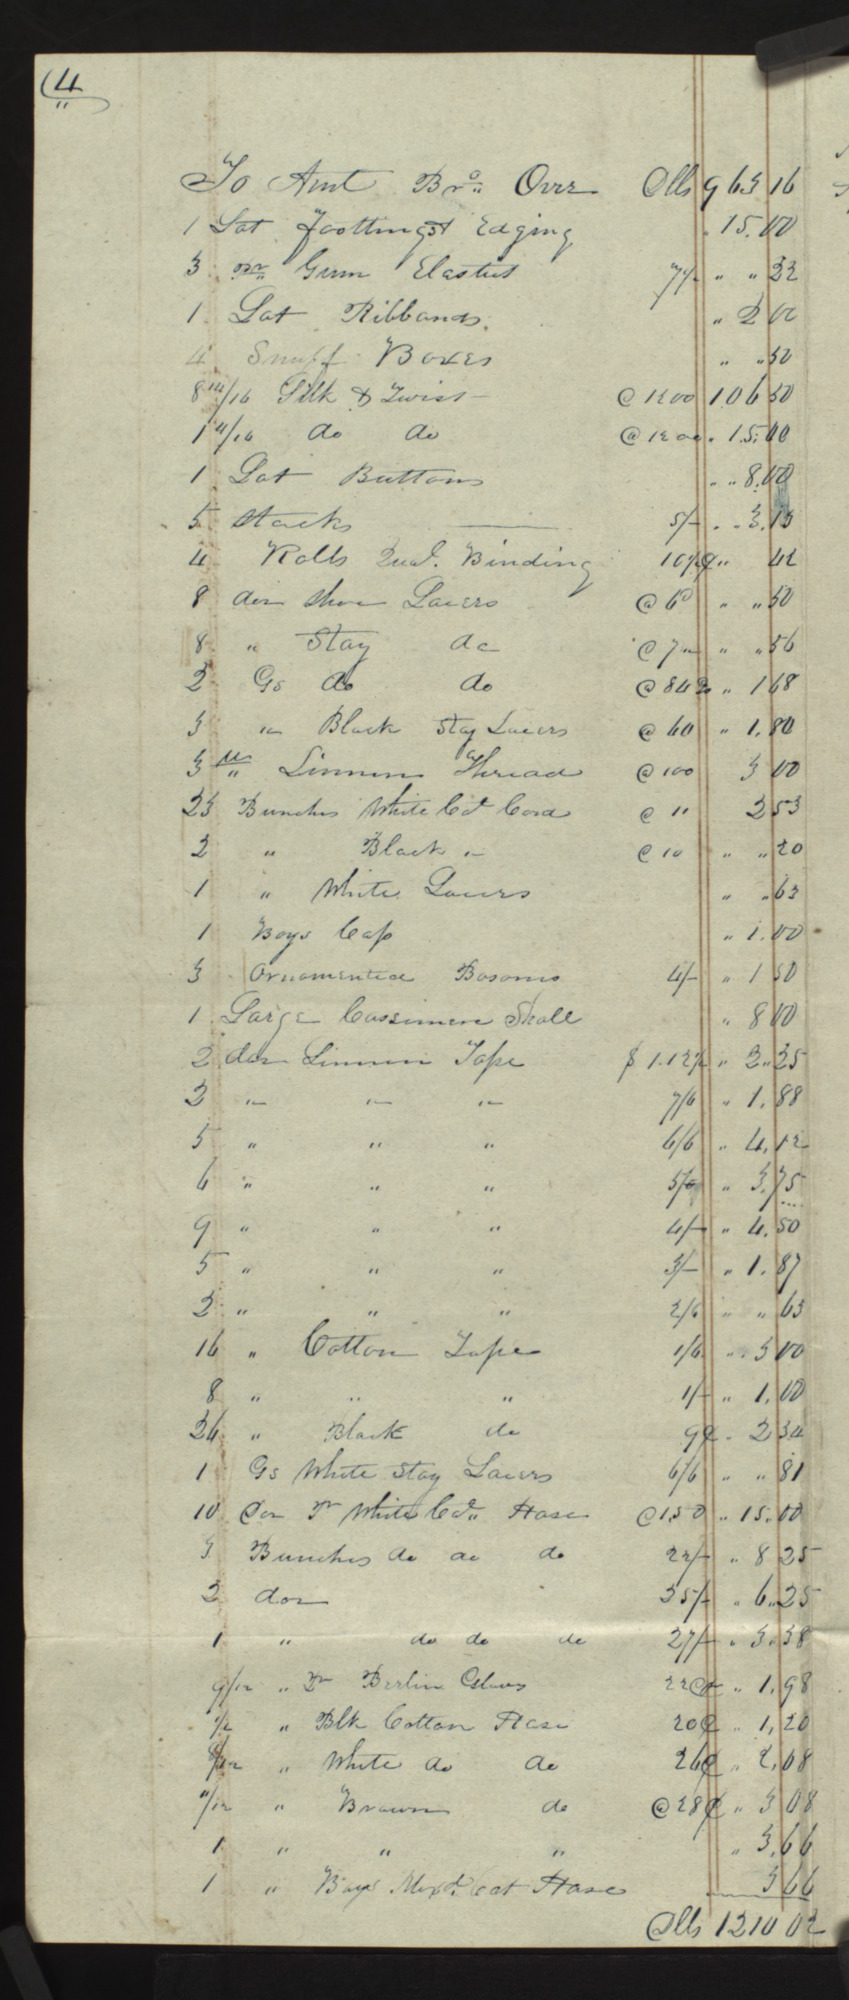 (4
To Amt Bro. Over Dlls 963 16
1 Lot foottings & Edging 15.00
3 pr Gum Elastics 7½ " " 22
1 Lot Ribbands " 2 00
4 Snuff Boxes " " 50
8 14/16 Silk & Twist @ 1200 106 50
1 4/16 do do @ 1200 15.00
1 Lot Buttons " " 8.00
5 Stocks 5/- " " 3.13
4 Rolls Qual. Binding 10½¢ " 42
8 doz Shoe Lacers @ 6¢ " " 50
8 " Stay do @ 7 " " 56
2 Gs do do @ 84¢ " 1 68
3 " Black Stay Lacers @ 60 " 1.80
3 lb Linnen Thread @ 100 3 00
23 Bunches White Cd Cord @ 11 2 53
2 " Black " @ 10 " " 20
1 " White Lacers " " 63
1 Boys Cap " 1.00
3 Ornamented Bosoms 4/- " 1 50
1 Large Cassimere Shall " 8 00
2 doz Linnen Tape $ 1.12½ " 2 " 25
2 " " " 7/6 " 1.88
5 " " " 6/6 " 4.12
6 " " " 5/- " 3.75
9 " " " 4/- " 4.50
5 " " " 3/- " 1.87
2 " " " 2/6 " " 63
16 " Cotton Tape 1/6 " 3 00
8 " " " 1/- " 1.00
26 " Black do 9¢ " 2 34
1 Gs White Stay Lacers 6/6 " " 81
10 Doz Pr White Cd " Hose @ 1.50 " 15.00
3 Bunches do do do 22/- " 8 25
2 doz 25/- " 6 " 25
1 " do do do 27/- " 3.38
9/12 " Pr Berlin Gloves 22¢ " 1.98
1/2 " Blk Cotton Hose 20¢ " 1,20
8/12 " White do do 26¢ " 2,08
11/12 " Brown do @ 28¢ " 3 08
1 " " " " 3,66
1 " Boys Mixd. Cot Hose 3 66
Dlls 1210 02